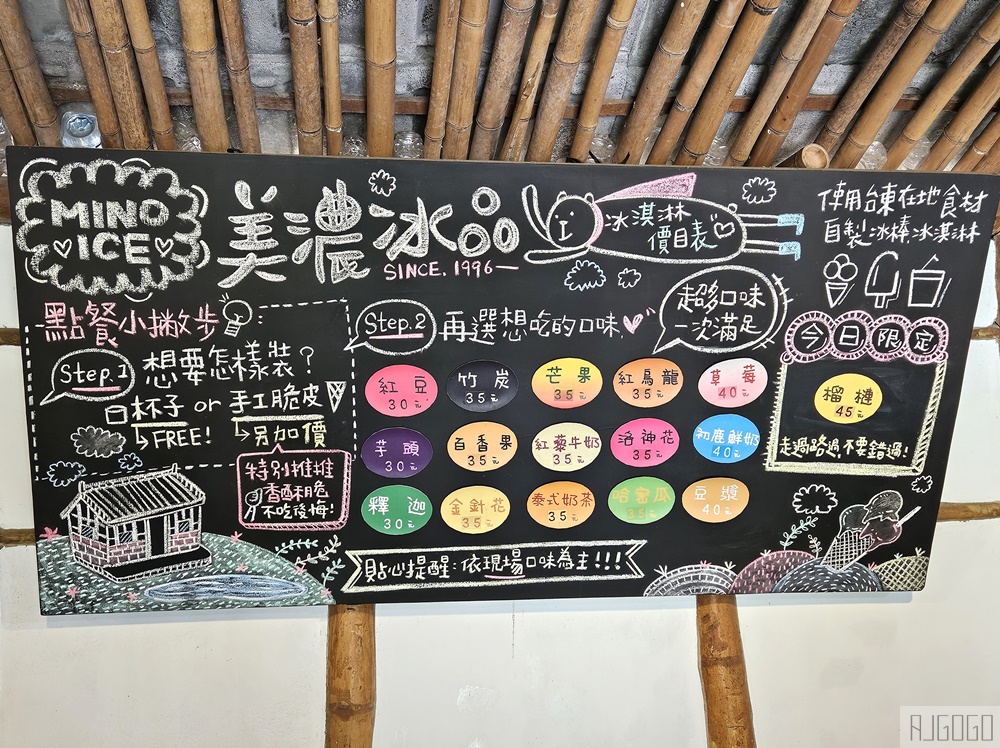 MINO
ICE
美濃冰品
SINCE. 1996
冰淇淋
價目表
使用台東在地食材
自製冰棒、冰淇淋
點餐小撇步
Step.1
想要怎樣裝?
杯子 or 手工脆皮
FREE!
另加價
特別推推
香酥脆
不吃後悔!
Step.2
再選想吃的口味
超多口味
一次滿足
紅豆
30元
竹炭
35元
芒果
35元
紅烏龍
35元
草莓
40元
芋頭
30元
百香果
35元
紅藜牛奶
35元
洛神花
35元
初鹿鮮奶
40元
釋迦
30元
金針花
35元
泰式奶茶
35元
哈密瓜
35元
豆漿
40元
貼心提醒:依現場口味為主!!!
今日限定
榴槤
45元
走過路過不要錯過!
AJGOGO